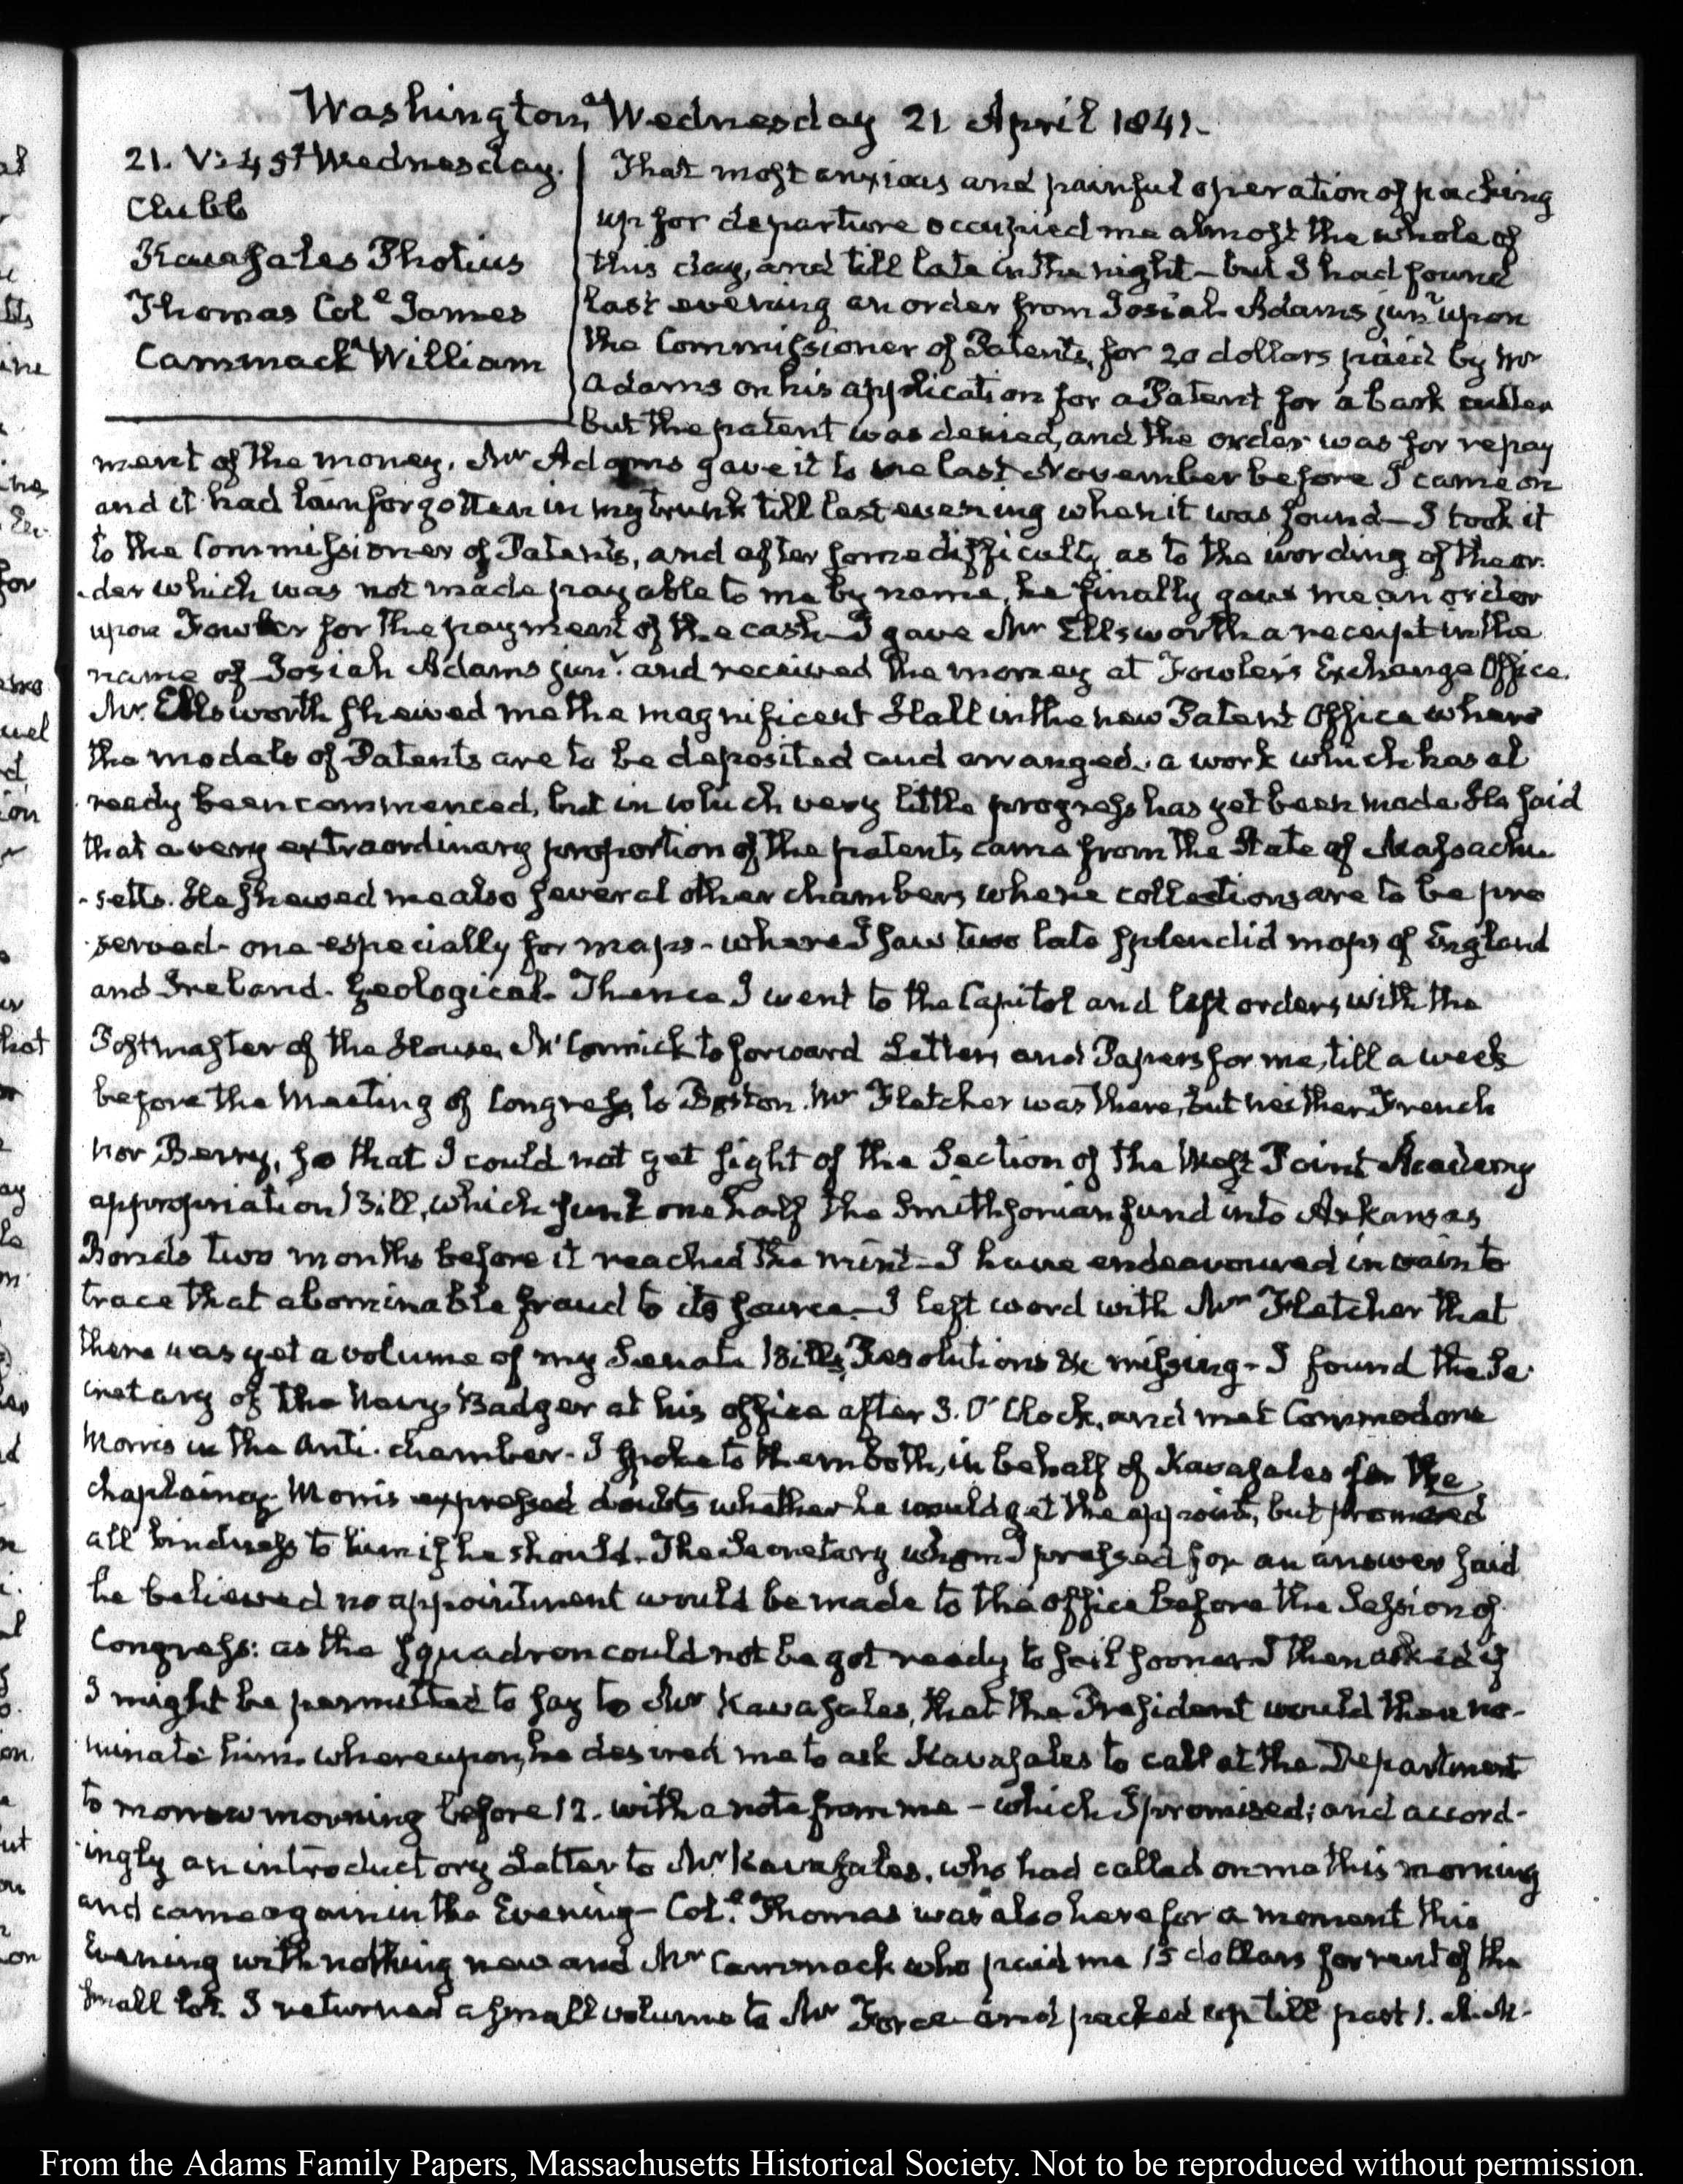 Washington, Wednesday 21 April 1841.
21. V: 45. Wednesday.
Clubb
Kavasales Photius
Thomas Cole James
Cammack William
That most anxious and painful operation of packing
up for departure occupied me almost the whole of
this day, and till late in the night - but I had found
last evening an order from Josiah Adams junr. upon
the Commissioner of Patents, for 20 dollars paid by Mr
Adams on his application for a Patent for a bark cutter
but the patent was denied, and the order was for repay
ment of the money. Mr Adams gave it to me last November before I came on
and it had lain forgotten in my trunk till last evening when it was found - I took it
to the Commissioner of Patents, and after some difficulty as to the wording of the or.
-der which was not made payable to me by name, he finally gave me an order
upon Fowler for the payment of the cash - I gave Mr Ellsworth a receipt in the
name of Josiah Adams junr. and received the money at Fowler's Exchange Office.
Mr. Ellsworth shewed me the magnificent Hall in the new Patent Office where
the models of Patents are to be deposited and arranged. a work which has al
ready been commenced, but in which very little progress has yet been made. He said
that a very extraordinary proportion of the patents came from the State of Massachu
-setts. He shewed me also several other chambers where collections are to be pre
-served - one especially for maps - where I saw two late splendid maps of England
and Ireland. Geological. Thence I went to the Capitol and left orders with the
Postmaster of the House, McCormick to forward Letters and Papers for me, till a week
before the Meeting of Congress, to Boston. Mr Fletcher was there, but neither French
nor Berry, so that I could not get sight of the Section of the West Point Academy
appropriation Bill, which sunk one half the Smithsonian fund into Arkansas
Bonds two months before it reached the mint - I have endeavoured in vain to
trace that abominable fraud to its source - I left word with Mr Fletcher that
there was yet a volume of my Senate Bills, Resolutions &c missing - I found the Se
cretary of the Navy Badger at his office after 3. O'Clock, and met Commodore
Morris in the Anti-chamber - I spoke to them both, in behalf of Kavasales for the
chaplaincy. Morris expressed doubts whether he would get the appoint, but promised
all kindness to him if he should. The Secretary whom I pressed for an answer said
he believed no appointment would be made to the office before the Session of
Congress: as the squadron could not be got ready to sail sooner. I then asked if
I might be permitted to say to Mr Kavasales, that the President would then no-
minate him. whereupon, he desired me to ask Kavasales to call at the Department
to morrow morning before 12. with a note from me - which I promised; and accord-
ingly an introductory Letter to Mr Kavasales. who had called on me this morning
and came again in the Evening - Cole. Thomas was also here for a moment this
Evening with nothing new and Mr Cammack who paid me 15 dollars for rent of the
small lot. I returned a small volume to Mr Force - and packed up till past 1. A.M.
From the Adams Family Papers, Massachusetts Historical Society. Not to be reproduced without permission.